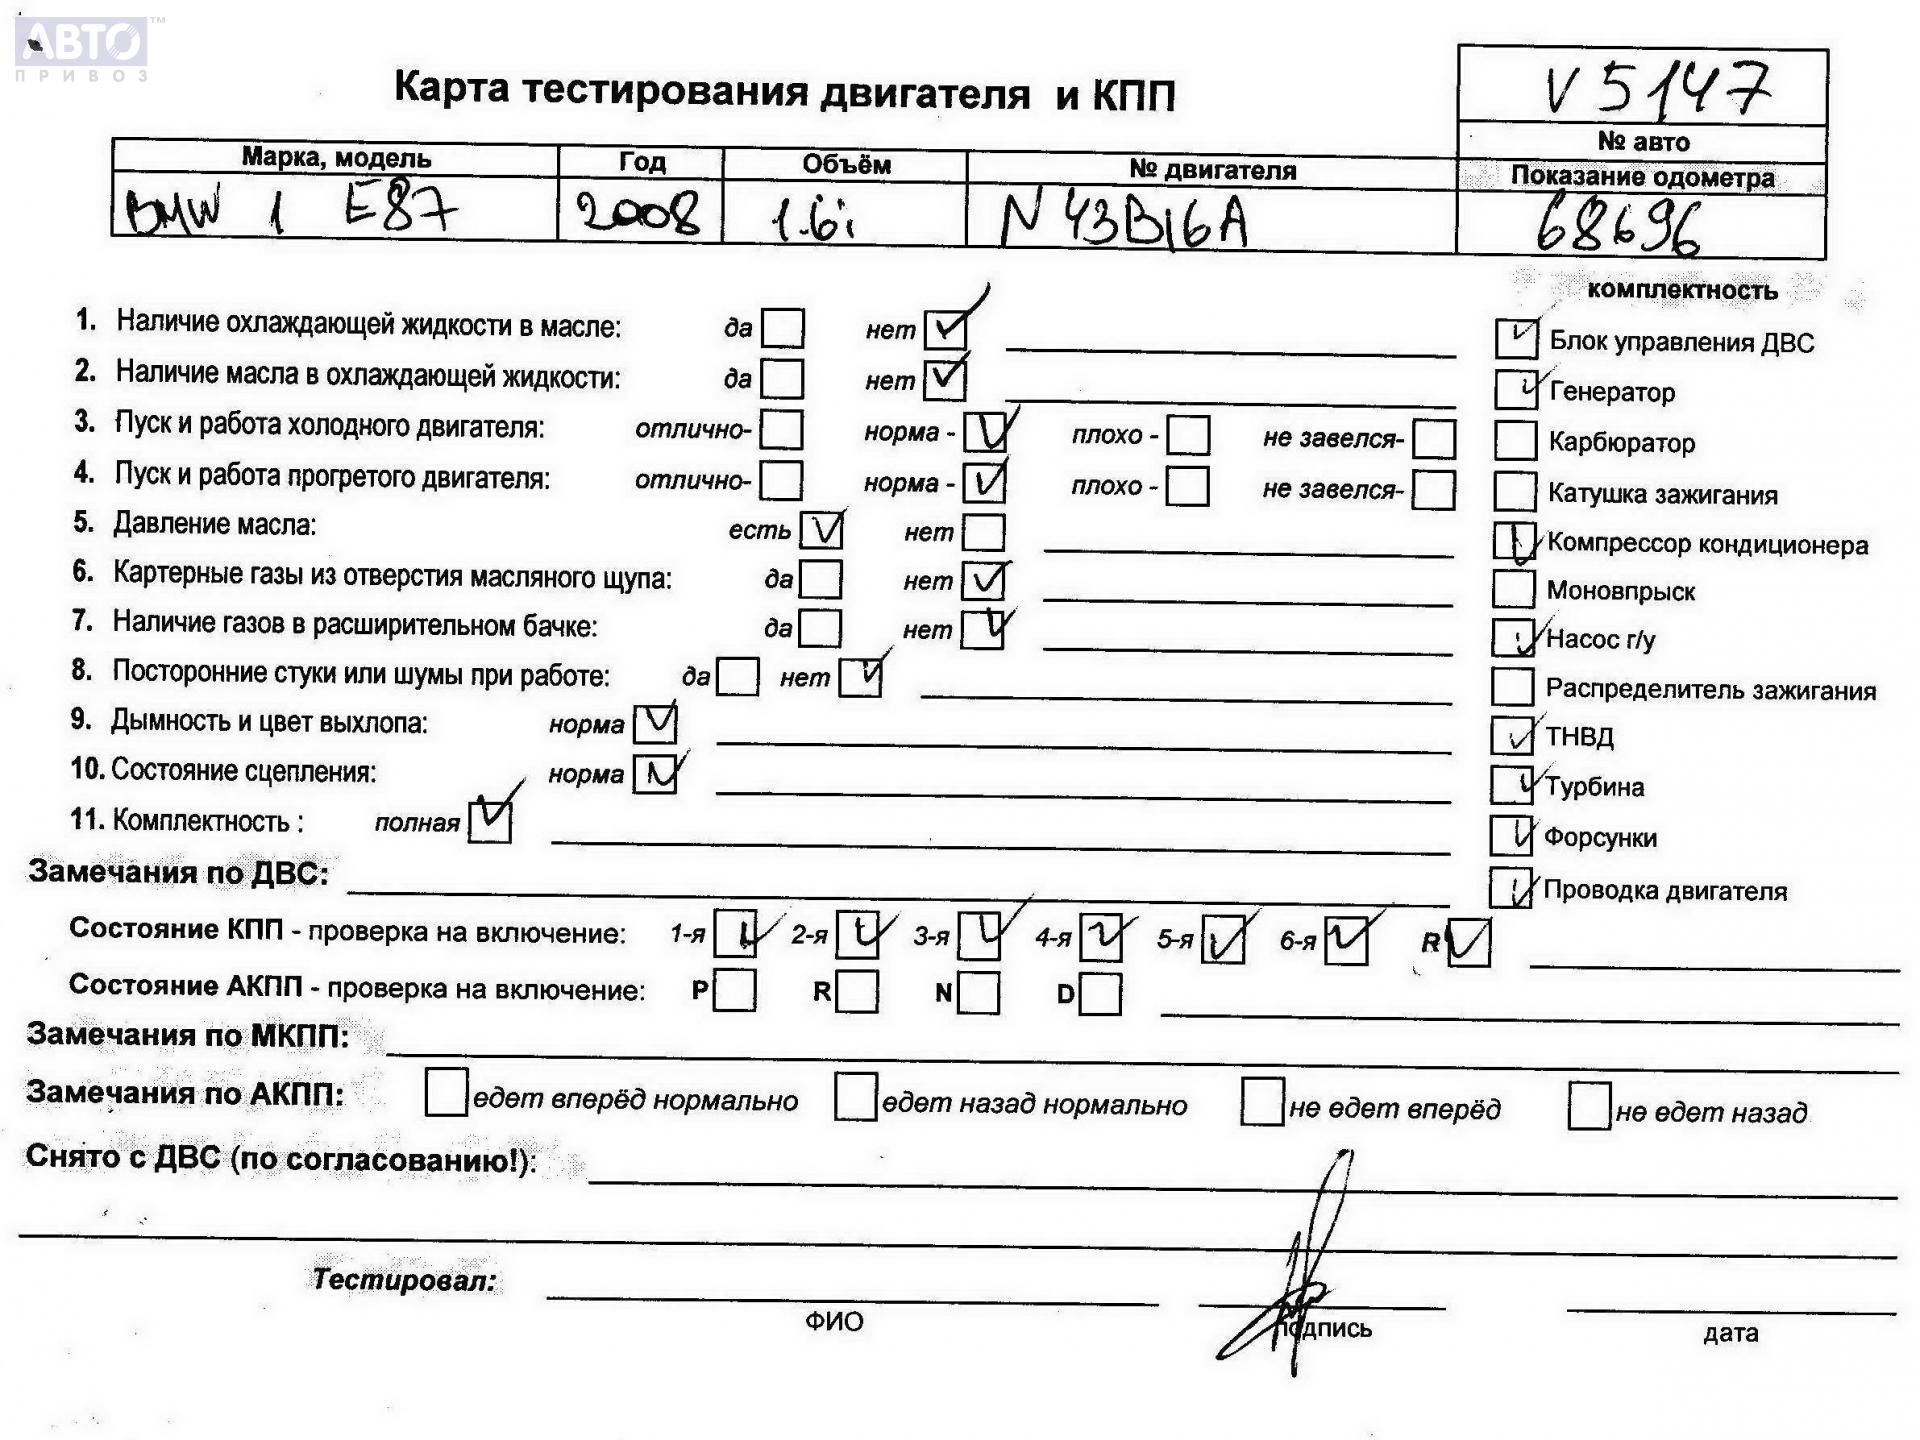 АВТО™
ПРИВОЗ
V5147
Карта тестирования двигателя и КПП
№ авто
Марка, модель Год Объём № двигателя Показание одометра
BMW 1 E87 2008 1.6i N43B16A 68696
комплектность
1. Наличие охлаждающей жидкости в масле: да нет ✓
Блок управления ДВС ✓
2. Наличие масла в охлаждающей жидкости: да нет ✓
Генератор ✓
3. Пуск и работа холодного двигателя: отлично- норма - ✓ плохо - не завелся-
Карбюратор
4. Пуск и работа прогретого двигателя: отлично- норма - ✓ плохо - не завелся-
Катушка зажигания
5. Давление масла: есть ✓ нет
Компрессор кондиционера ✓
6. Картерные газы из отверстия масляного щупа: да нет ✓
Моновпрыск
7. Наличие газов в расширительном бачке: да нет ✓
Насос г/у ✓
8. Посторонние стуки или шумы при работе: да нет ✓
Распределитель зажигания
9. Дымность и цвет выхлопа: норма ✓
ТНВД ✓
10. Состояние сцепления: норма ✓
Турбина ✓
11. Комплектность : полная ✓
Форсунки ✓
Замечания по ДВС:
Проводка двигателя ✓
Состояние КПП - проверка на включение: 1-я ✓ 2-я ✓ 3-я ✓ 4-я ✓ 5-я ✓ 6-я ✓ R ✓
Состояние АКПП - проверка на включение: P R N D
Замечания по МКПП:
Замечания по АКПП: едет вперёд нормально едет назад нормально не едет вперёд не едет назад
Снято с ДВС (по согласованию!):
Тестировал:
ФИО подпись дата